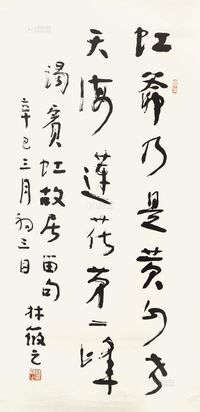 虹爺乃是黄山老
天海蓮花第一峰
謁賓虹故居留句
辛巳三月初三日 林筱之